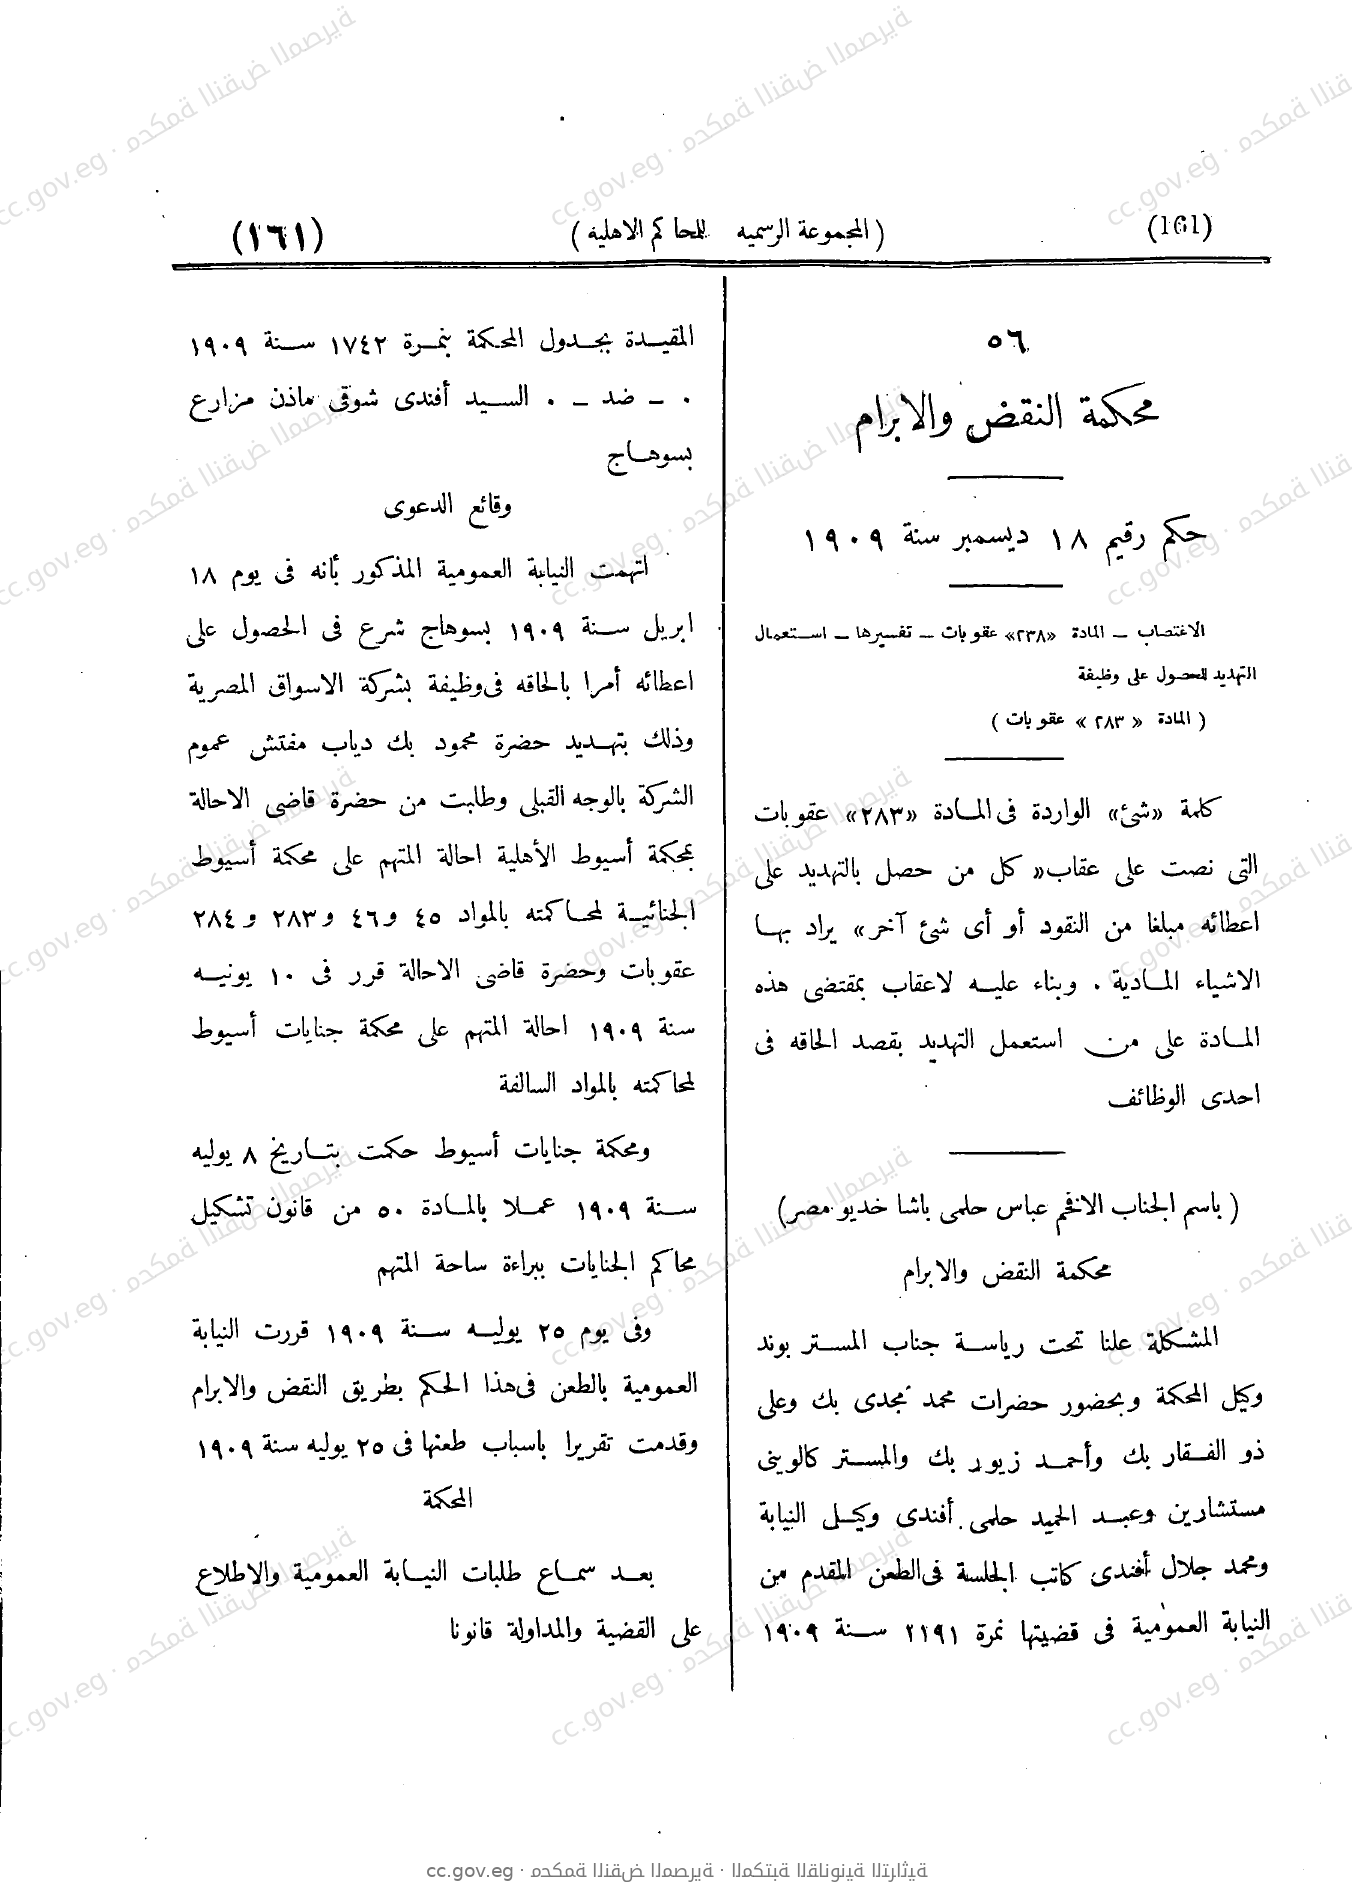 (161) (المجموعة الرسميه للمحاكم الاهليه) (١٦١)
٥٦
محكمة النقض والابرام
حكم رقيم ١٨ ديسمبر سنة ١٩٠٩
الاغتصاب – المادة «٢٣٨» عقوبات – تفسيرها – استعمال
التهديد للحصول على وظيفة
( المادة « ٢٨٣ » عقوبات )
كلمة «شئ» الواردة فى المادة «٢٨٣» عقوبات
التى نصت على عقاب« كل من حصل بالتهديد على
اعطائه مبلغا من النقود أو أى شئ آخر» يراد بها
الاشياء المادية . وبناء عليه لاعقاب بمقتضى هذه
المادة على من استعمل التهديد بقصد الحاقه فى
احدى الوظائف
( باسم الجناب الافخم عباس حلمى باشا خديو مصر)
محكمة النقض والابرام
المشكلة علنا تحت رياسة جناب المستر بوند
وكيل المحكمة وبحضور حضرات محمد مجدى بك وعلى
ذو الفقار بك وأحمد زيور بك والمستر كالوينى
مستشارين وعبد الحميد حلمى أفندى وكيل النيابة
ومحمد جلال أفندى كاتب الجلسة فى الطعن المقدم من
النيابة العمومية فى قضيتها نمرة ٢١٩١ سنة ١٩٠٩
المقيدة بجدول المحكمة بنمرة ١٧٤٢ سنة ١٩٠٩
. – ضد – . السيد أفندى شوقى ماذن مزارع
بسوهاج
وقائع الدعوى
اتهمت النيابة العمومية المذكور بأنه فى يوم ١٨
ابريل سنة ١٩٠٩ بسوهاج شرع فى الحصول على
اعطائه أمرا بالحاقه فى وظيفة بشركة الاسواق المصرية
وذلك بتهديد حضرة محمود بك دياب مفتش عموم
الشركة بالوجه القبلى وطلبت من حضرة قاضى الاحالة
بمحكمة أسيوط الأهلية احالة المتهم على محكمة أسيوط
الجنائية لمحاكمته بالمواد ٤٥ و٤٦ و٢٨٣ و٢٨٤
عقوبات وحضرة قاضى الاحالة قرر فى ١٠ يونيه
سنة ١٩٠٩ احالة المتهم على محكمة جنايات أسيوط
لمحاكمته بالمواد السالفة
ومحكمة جنايات أسيوط حكمت بتاريخ ٨ يوليه
سنة ١٩٠٩ عملا بالمادة ٥٠ من قانون تشكيل
محاكم الجنايات ببراءة ساحة المتهم
وفى يوم ٢٥ يوليه سنة ١٩٠٩ قررت النيابة
العمومية بالطعن فى هذا الحكم بطريق النقض والابرام
وقدمت تقريرا باسباب طعنها فى ٢٥ يوليه سنة ١٩٠٩
المحكمة
بعد سماع طلبات النيابة العمومية والاطلاع
على القضية والمداولة قانونا
cc.gov.eg · محكمة النقض المصرية · المكتبة القانونية التراثية